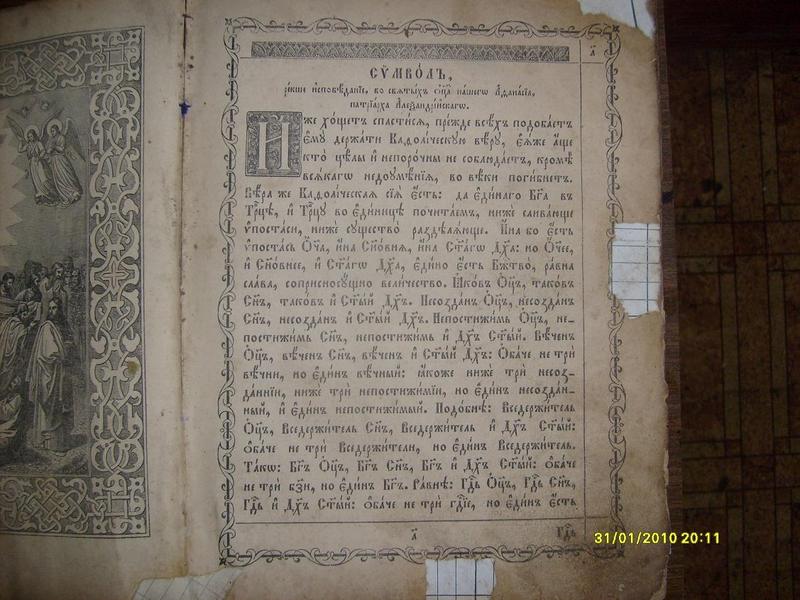 а҃
СѶМВО́ЛЪ,
ре́кши и҆сповѣ́данїе, во ст҃ы́хъ ѻ҆ц҃а̀ на́шегѡ А҆ѳана́сїа,
патрїа́рха А҆леѯандрі́йскагѡ.
И҆́же хо́щетъ спасти́сѧ, пре́жде всѣ́хъ подоба́етъ
є҆мꙋ̀ держа́ти Каѳолі́ческꙋю вѣ́рꙋ, є҆ѧ́же а҆́ще
кто̀ цѣ́лы и҆ непоро́чны не соблюда́етъ, кромѣ̀
всѧ́кагѡ недоꙋмѣ́нїѧ, во вѣ́ки поги́бнетъ.
Вѣ́ра же Каѳолі́ческаѧ сїѧ̀ є҆́сть: да є҆ди́наго Бг҃а въ
Трⷪ҇цѣ, и҆ Трⷪ҇цꙋ во є҆ди́ницѣ почита́емъ, нижѐ слива́юще
ѵ҆поста́си, нижѐ сꙋщество̀ раздѣлѧ́юще. И҆́на бо є҆́сть
ѵ҆поста́сь Ѻ҆́ч҃а, и҆́на Сн҃о́внѧ, и҆́на Ст҃а́гѡ Дх҃а: но Ѻ҆́ч҃ее,
и҆ Сн҃о́внее, и҆ Ст҃а́гѡ Дх҃а, є҆ди́но є҆́сть Бж҃тво̀, ра́вна
сла́ва, соприсносꙋ́щно вели́чество. Ꙗ҆ко́въ Ѻ҆ц҃ъ, тако́въ
Сн҃ъ, тако́въ и҆ Ст҃ы́й Дх҃ъ. Несозда́нъ Ѻ҆ц҃ъ, несозда́нъ
Сн҃ъ, несозда́нъ и҆ Ст҃ы́й Дх҃ъ. Непостижи́мь Ѻ҆ц҃ъ, не-
постижи́мь Сн҃ъ, непостижи́мь и҆ Дх҃ъ Ст҃ы́й. Вѣ́ченъ
Ѻ҆ц҃ъ, вѣ́ченъ Сн҃ъ, вѣ́ченъ и҆ Ст҃ы́й Дх҃ъ: Ѻ҆ба́че не трѝ
вѣ́чни, но є҆ди́нъ вѣ́чный: ꙗ҆́коже нижѐ трѝ несоз-
да́ннїи, нижѐ трѝ непостижи́мїи, но є҆ди́нъ несозда́н-
ный, и҆ є҆ди́нъ непостижи́мый. Подо́бнѣ: Вседержи́тель
Ѻ҆ц҃ъ, Вседержи́тель Сн҃ъ, Вседержи́тель и҆ Дх҃ъ Ст҃ы́й:
ѻ҆ба́че не трѝ Вседержи́тели, но є҆ди́нъ Вседержи́тель.
Та́кѡ: Бг҃ъ Ѻ҆ц҃ъ, Бг҃ъ Сн҃ъ, Бг҃ъ и҆ Дх҃ъ Ст҃ы́й: ѻ҆ба́че
не трѝ бз҃и, но є҆ди́нъ Бг҃ъ. Ра́внѣ: Гдⷭ҇ь Ѻ҆ц҃ъ, Гдⷭ҇ь Сн҃ъ,
Гдⷭ҇ь и҆ Дх҃ъ Ст҃ы́й: ѻ҆ба́че не трѝ гдⷭ҇їе, но є҆ди́нъ є҆́сть
а҃
Гдⷭ҇ь
31/01/2010 20:11